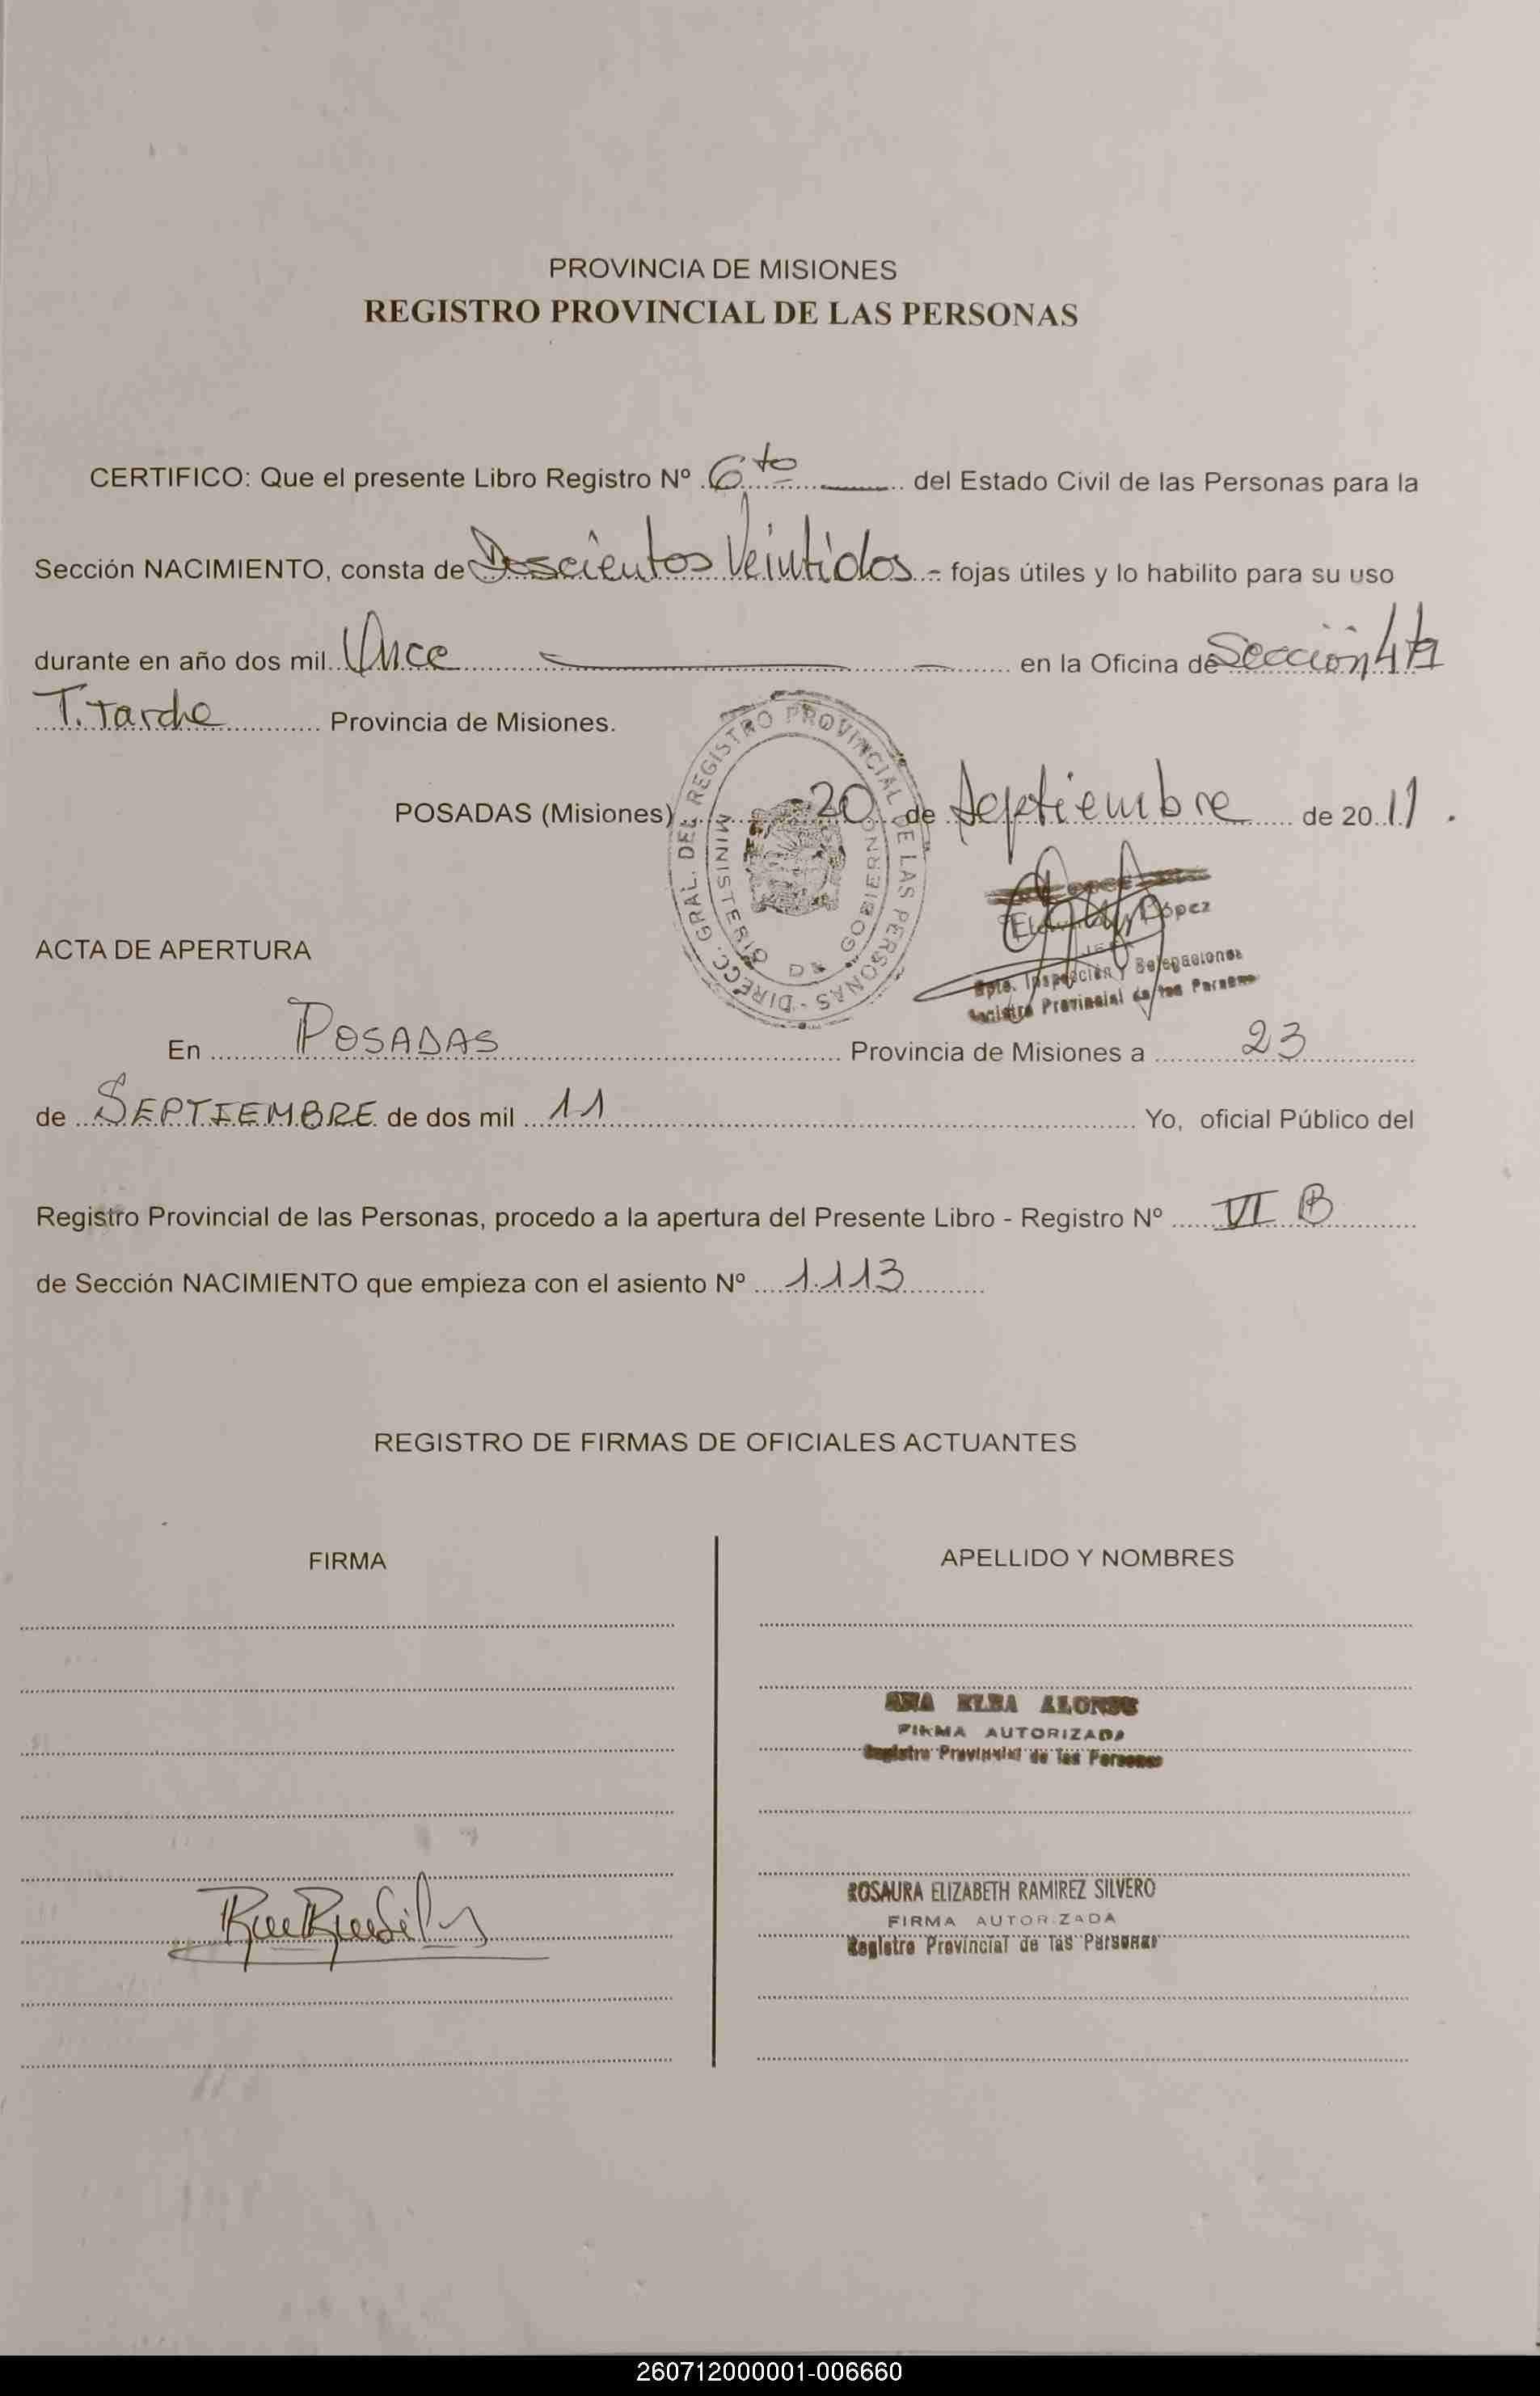 PROVINCIA DE MISIONES
REGISTRO PROVINCIAL DE LAS PERSONAS
CERTIFICO: Que el presente Libro Registro Nº 6to del Estado Civil de las Personas para la
Sección NACIMIENTO, consta de Doscientos Veintidos.- fojas útiles y lo habilito para su uso
durante en año dos mil Once en la Oficina de Sección 4ta
T. Tarde Provincia de Misiones.
POSADAS (Misiones) 20 de Septiembre de 2011.
DIRECC. GRAL. DEL REGISTRO PROVINCIAL DE LAS PERSONAS -
MINISTERIO DE GOBIERNO
López
Dpto. Inspección y Delegaciones
Registro Provincial de las Personas
ACTA DE APERTURA
En POSADAS Provincia de Misiones a 23
de SEPTIEMBRE de dos mil 11 Yo, oficial Público del
Registro Provincial de las Personas, procedo a la apertura del Presente Libro - Registro Nº VI B
de Sección NACIMIENTO que empieza con el asiento Nº 1113
REGISTRO DE FIRMAS DE OFICIALES ACTUANTES
FIRMA APELLIDO Y NOMBRES
ANA ELBA ALONSO
FIRMA AUTORIZADA
Registro Provincial de las Personas
ROSAURA ELIZABETH RAMIREZ SILVERO
FIRMA AUTORIZADA
Registro Provincial de las Personas
260712000001-006660